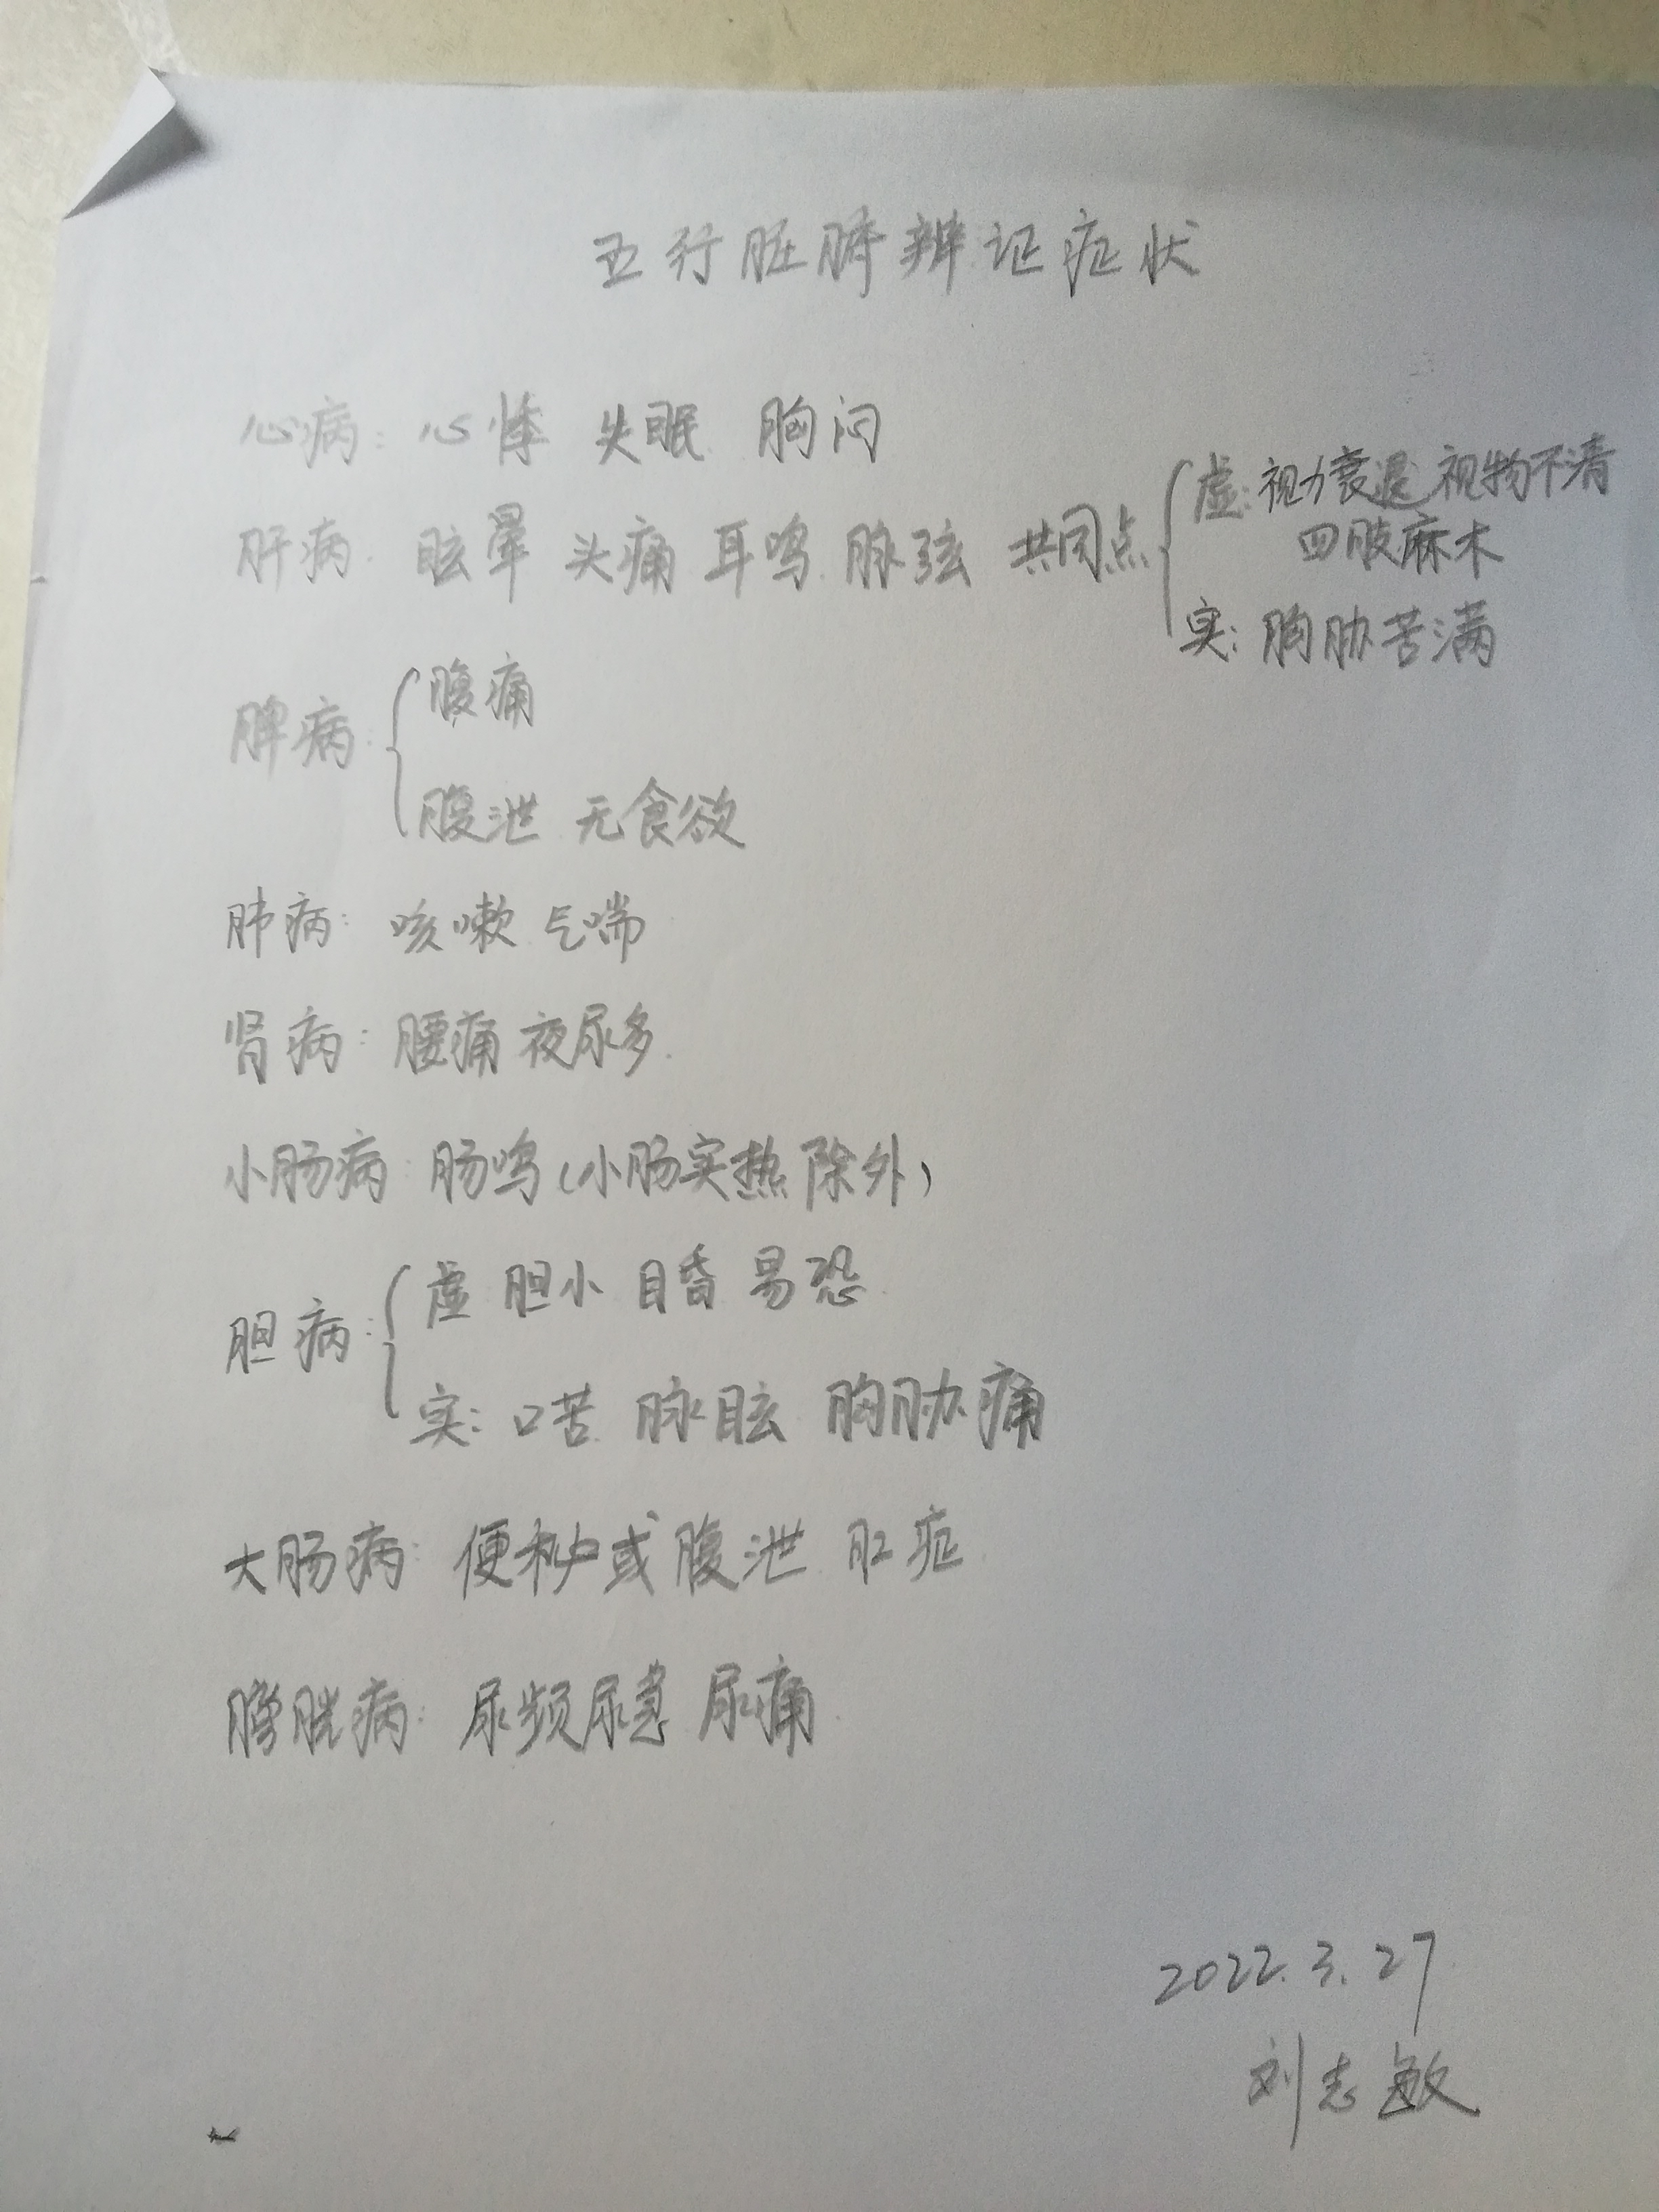 五行脏腑辨证症状
心病：心悸 失眠 胸闷
肝病：眩晕 头痛 耳鸣 脉弦 共同点
虚：视力衰退 视物不清
四肢麻木
实：胸胁苦满
脾病：
腹痛
腹泄 无食欲
肺病：咳嗽 气喘
肾病：腰痛 夜尿多
小肠病：肠鸣（小肠实热除外）
胆病：
虚 胆小 目昏 易恐
实：口苦 脉眩 胸胁痛
大肠病：便秘或腹泄 肛症
膀胱病：尿频尿急 尿痛
2022.3.27
刘志敏